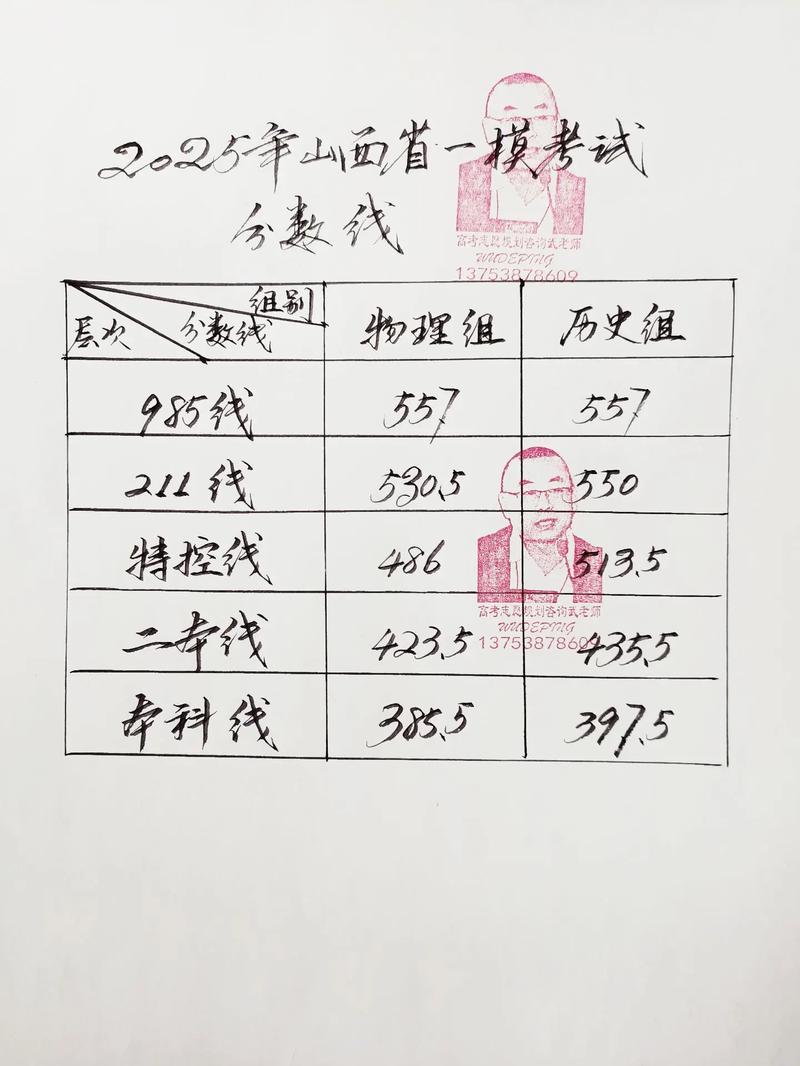 2025年山西省一模考试
分数线
高考志愿规划咨询武老师
WUDEPING
13753878609
组别
层次 分数线 物理组 历史组
985线 557 557
211线 530.5 550
特控线 486 513.5
高考志愿规划咨询武老师
WUDEPING
13753878609
二本线 423.5 435.5
本科线 385.5 397.5